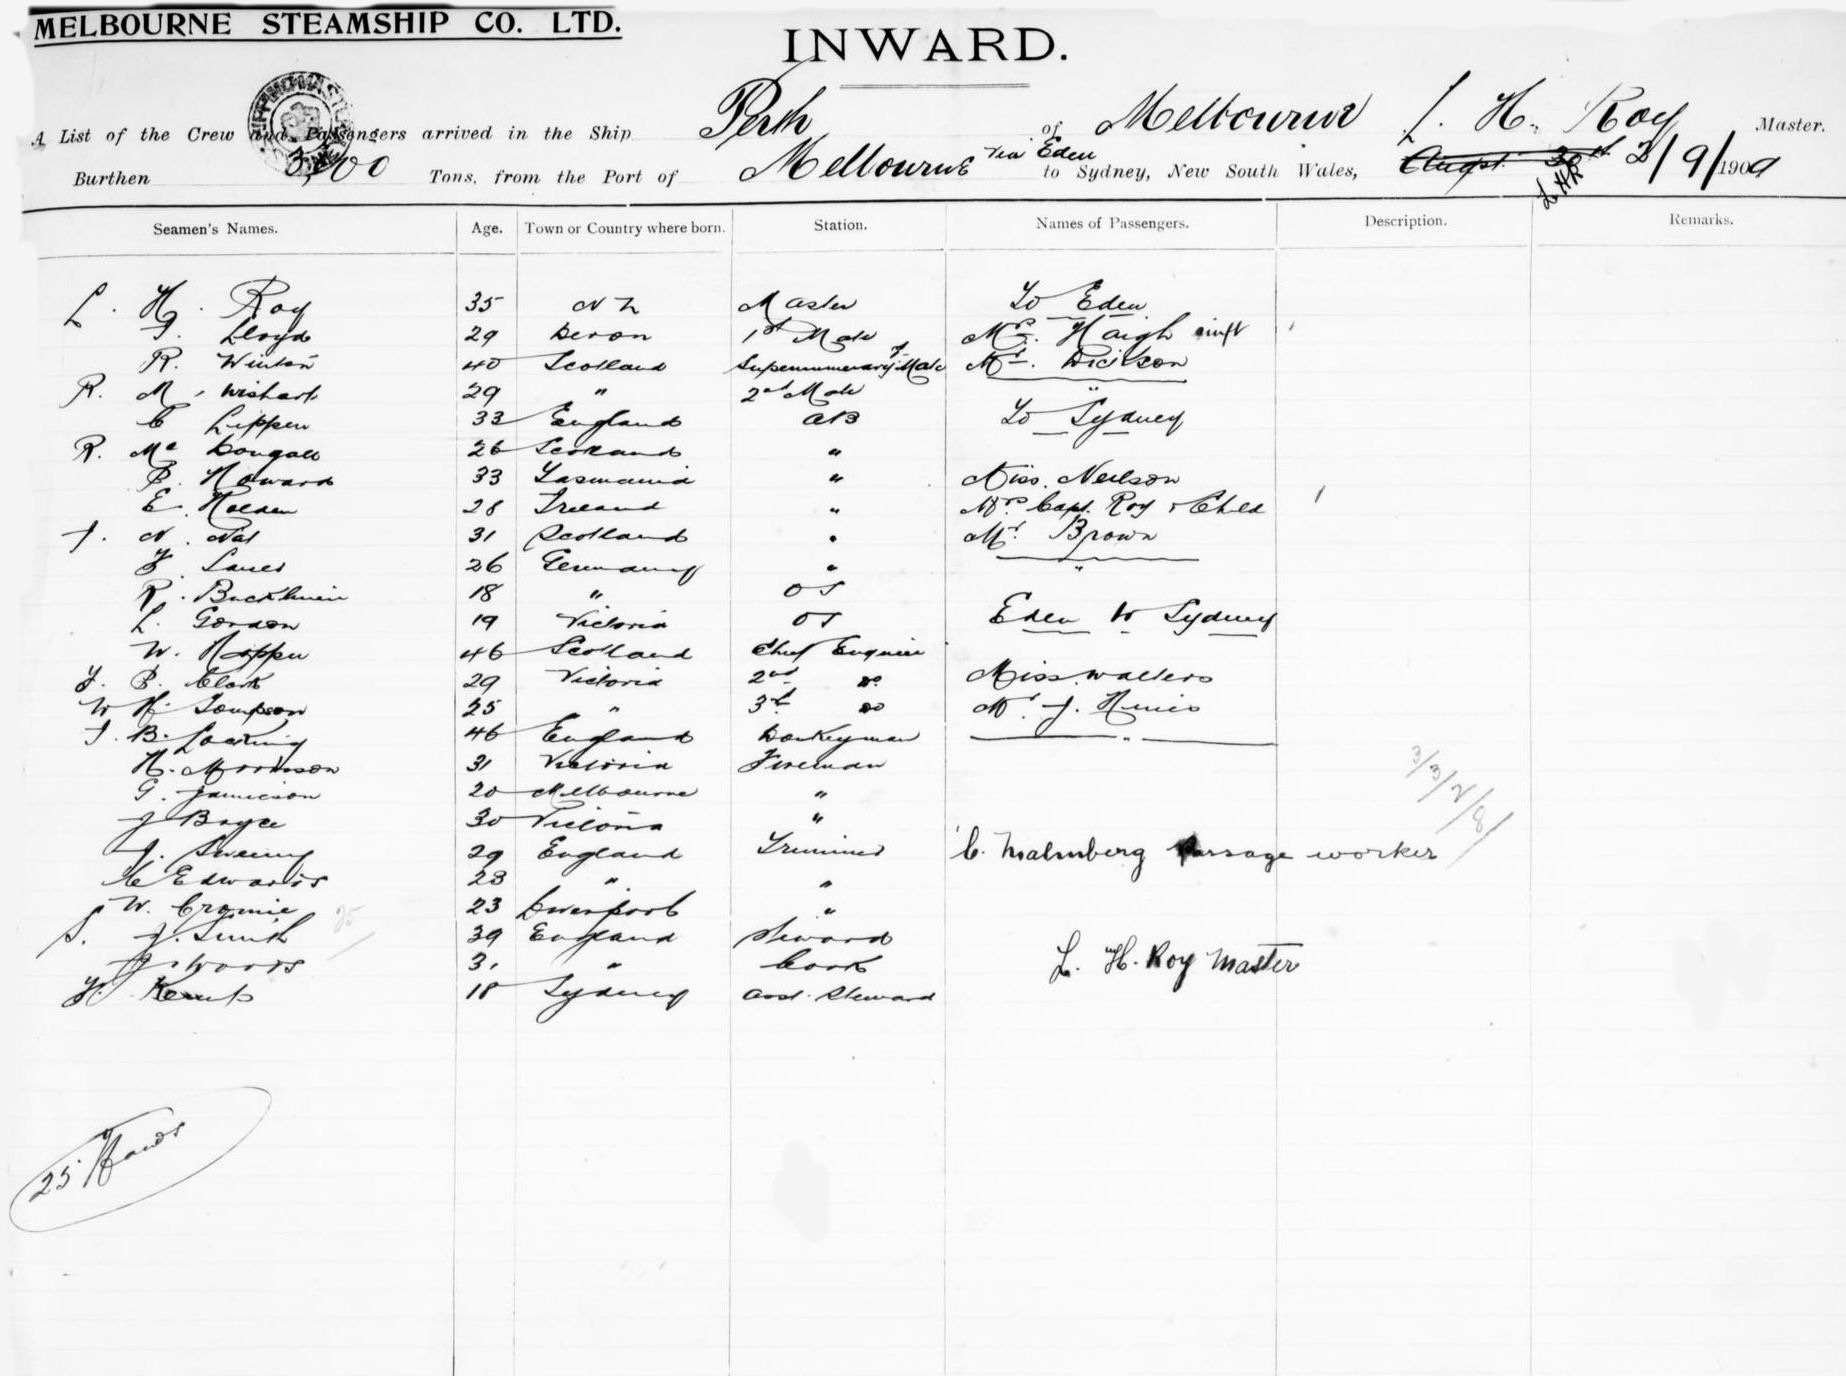 MELBOURNE STEAMSHIP CO. LTD.
INWARD.
A List of the Crew and Passengers arrived in the Ship Perth of Melbourne L. H. Roy Master.
Burthen Tons, from the Port of Melbourne via Eden to Sydney, New South Wales, 2/9/1909
LHR
Seamen's Names. Age. Town or Country where born. Station. Names of Passengers. Description. Remarks.
L. H. Roy 35 NZ Master To Eden
Lloyd 29 Devon 1st Mate Mrs. Haigh
R. Winton 40 Scotland Supernumerary Mate Mr. Dickson
R. M. Wishart 29 " 2nd Mate "
C Lippen 33 England AB To Sydney
R. Mc Dougall 26 Scotland "
Howard 33 Tasmania " Miss. Neilson
E. Holden 28 Ireland " Mrs. Capt. Roy & Child
J. N. 31 Scotland " Mr. Brown
26 Germany " "
R. 18 " OS
L. Gordon 19 Victoria OS Eden to Sydney
W. 46 Scotland Chief Engineer
P. Clark 29 Victoria 2nd Do Miss. Walters
W H. Tompson 25 " 3rd Do Mr. J.
J. B. 46 England Donkeyman "
H. Morrison 31 Victoria Fireman
G. Jamieson 20 Melbourne "
J Bryce 30 Victoria "
J. 29 England Trimmer C. Malmberg Passage worker
Edwards 23 " "
W. Cromie 23 Liverpool "
S. J. Smith 39 England Steward
J Woods 31 " Cook L. H. Roy Master
Kemp 18 Sydney Asst. Steward
3/3/2/8/
25
25 Hands